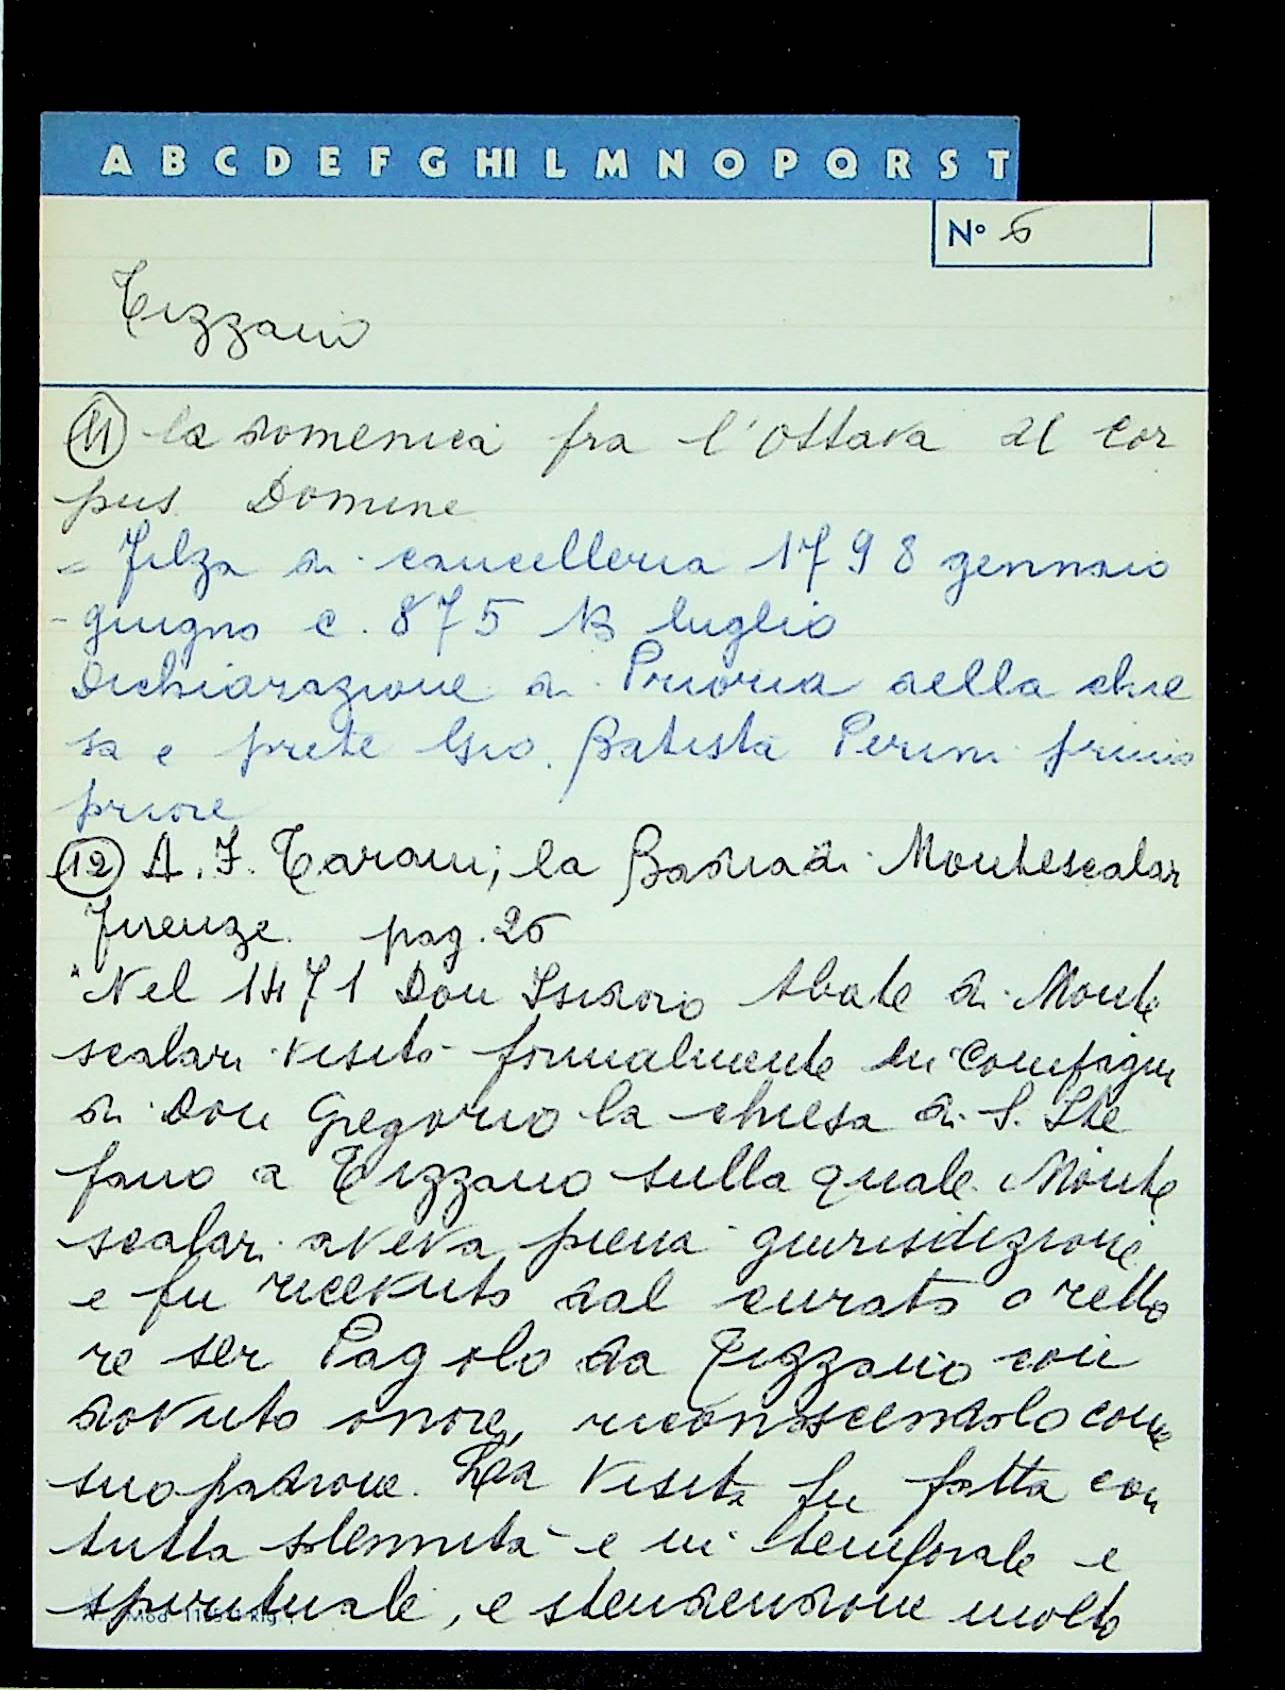 A B C D E F G HI L M N O P Q R S T
N° 6
Tizzano
11 la domenica fra l'Ottava del Cor
pus Domine
= Filza di cancelleria 1798 gennaio
- giugno c. 875 13 luglio
Dichiarazione di Prioria della chie
sa e prete Gio. Batista Perini primo
priore
12 A. F. Tarani; la Badia di Montescalari
Firenze. pag. 26
"Nel 1471 Don Isidoro Abate di Monte
scalari visitò formalmente in compagni
di Don Gregorio la chiesa di S. Ste
fano a Tizzano sulla quale Monte
scalari aveva piena giurisidizione
e fu ricevuto dal curato o retto
re ser Pagolo da Tizzano con
dovuto onore, riconoscendolo come
suo padrone. La visita fu fatta con
tutta solennità e in temporale e
spirituale, e stendendone molto